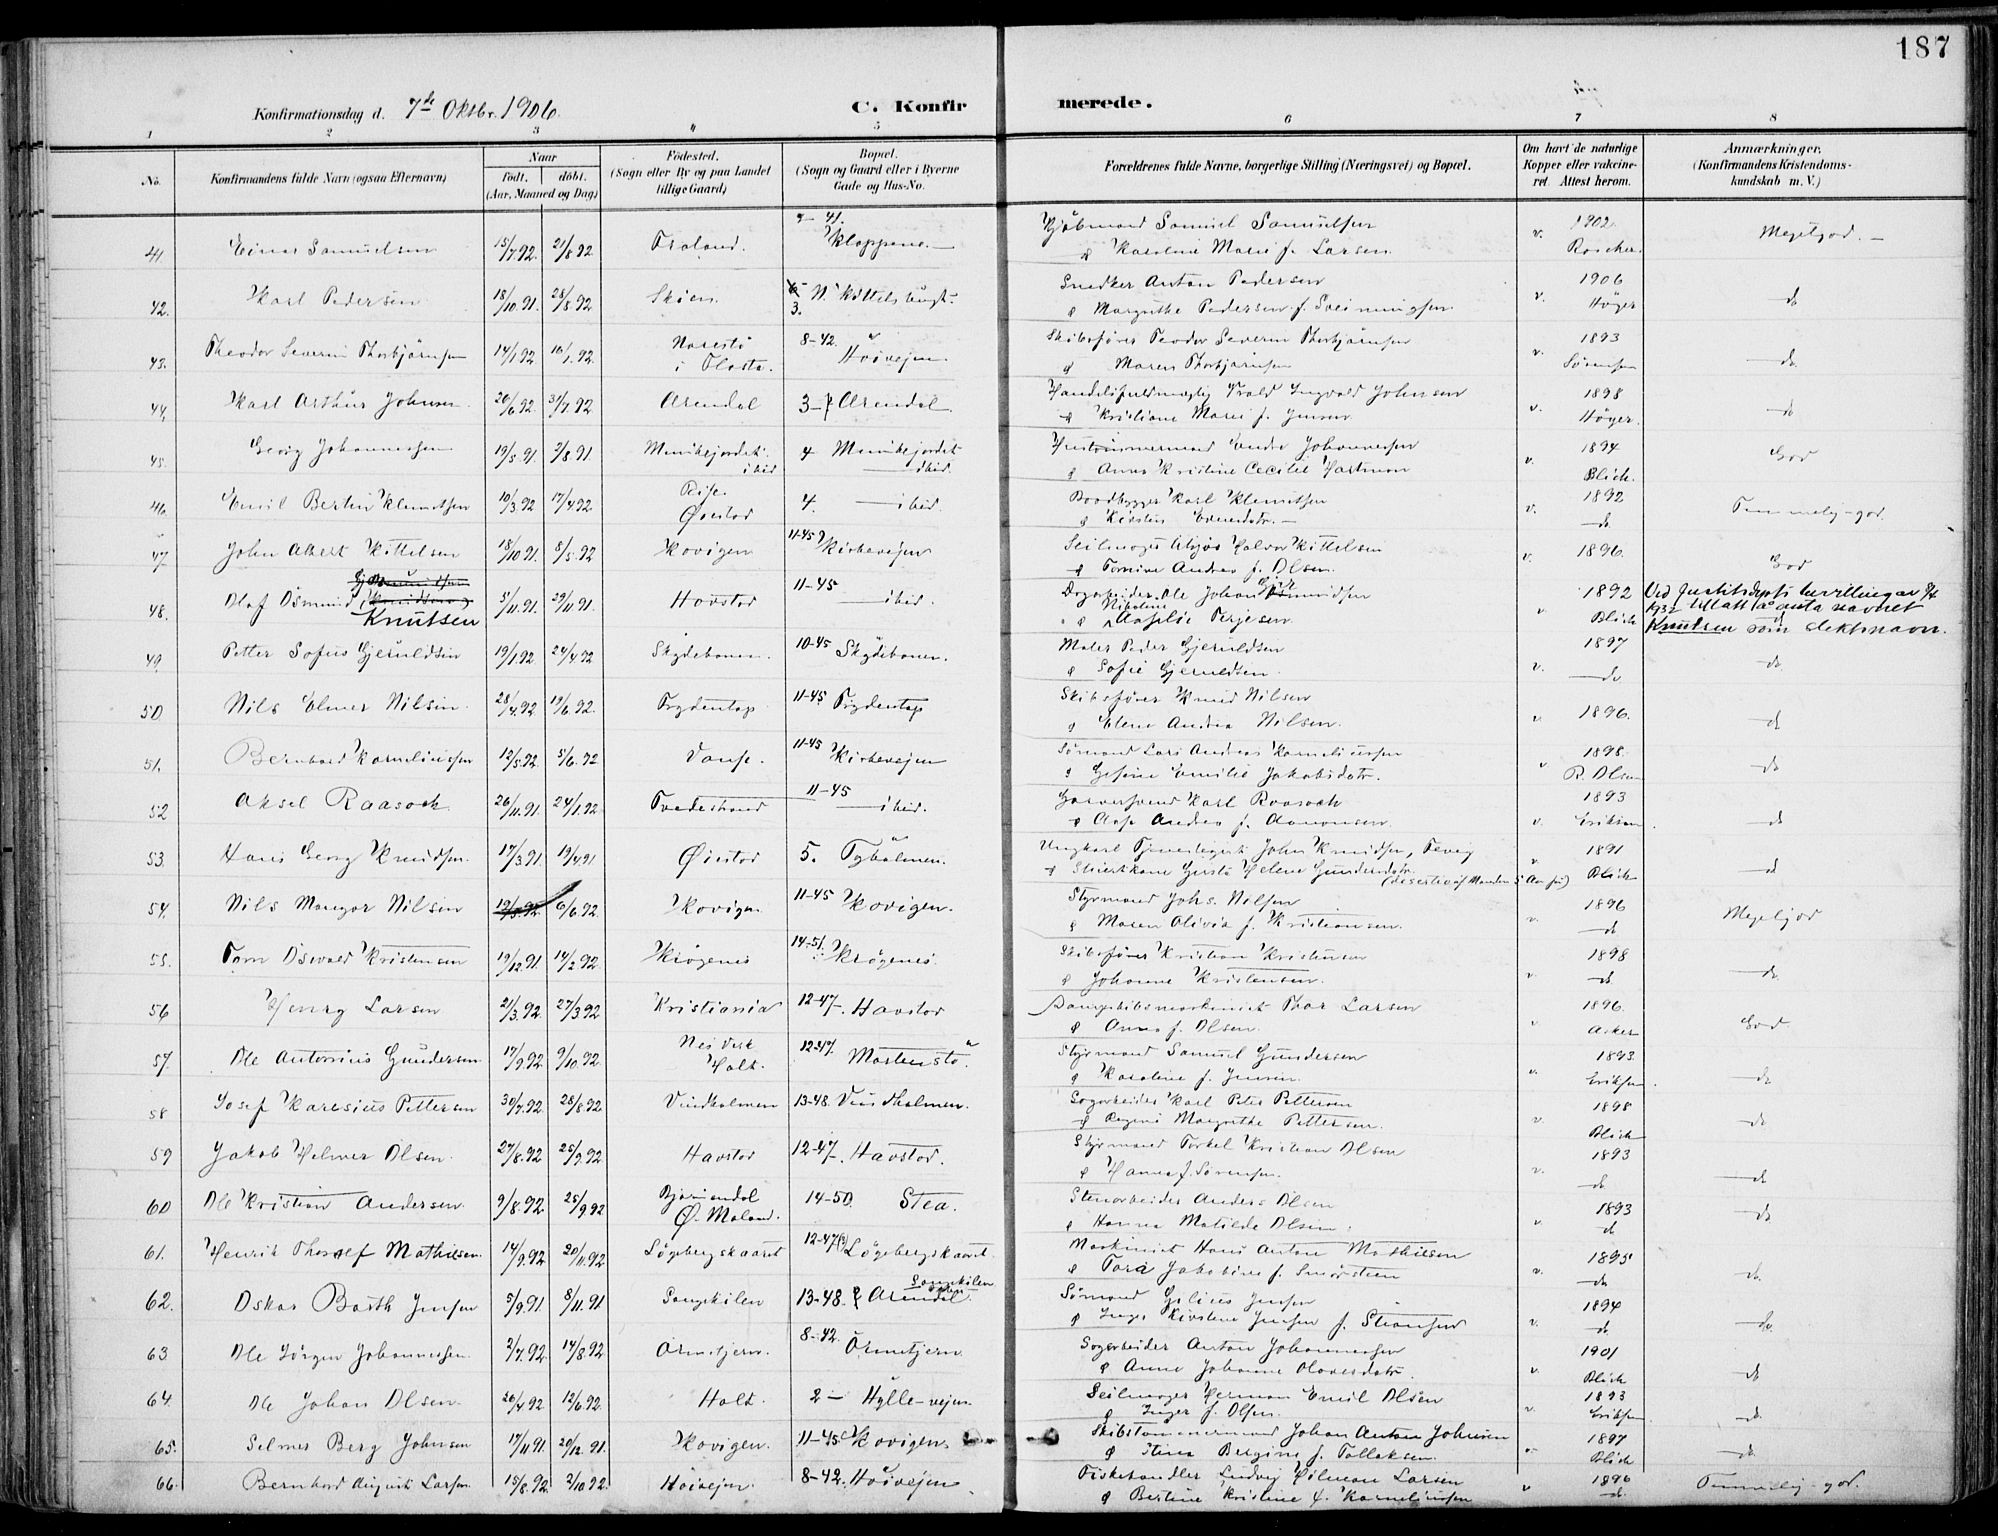 187
Konfirmationsdag d. 7de Oktbr. 1906.
C. Konfirmerede.
1 2 3 4 5 6 7 8
No. Konfirmandens fulde Navn (ogsaa Efternavn) Naar født. døbt. (Aar, Maaned og Dag) Fødested. (Sogn eller By og paa Landet tillige Gaard) Bopæl. (Sogn og Gaard eller i Byerne Gade og Hus-No. Forældrenes fulde Navne, borgerlige Stilling (Næringsvei) og Bopæl. Om havt de naturlige Kopper eller vakcineret. Attest herom. Anmærkninger. (Konfirmandens Kristendomskundskab m. V.)
41 Einar Samuelsen 15/7.92. 21/8.92 Froland. 41. Kloppene Samuel Samuelsen v. 1902. Megetgod.
Karoline Marie f. Larsen.
42. Karl Pedersen 18/10.91. 28/8.92 Skien. 3. N. Kittelsbugt. Snedker Anton Pedersen v. 1906 do
Margrethe Pedersen f. Høyer
43. Theodor Severin Thorbjørnsen 14/1.92 10/1.92. Narestø i Flosta. 8-42. Høivejen. Skibsfører Teodor Severin Thorbjørnsen v. 1893 do
Maren Thorbjørnsen Sørensen
44. Karl Arthur Johnsen 20/6.92. 31/7.92 Arendal 3- Arendal Ingvald Johnsen v. 1898 do
Kristiane Marie f. Jensen Høyer.
45. Georg Johannessen 19/5.91. 2/8.91 Munkejordet. ibid 4 Munkejordet ibid. Johannessen v. 1894 God
Anna Kristine Cecilie Hartman Blich.
46. Emil Bertin Klemetsen 10/3.92 17/4.92 Øiestad 4. ibid. Baadbygger Karl Klemetsen v. 1892 Temmelig-god
Kirstine do
47. John Albert Kittelsen 18/10.91. 8/5.92 Kovigen 11-45 Kirkevejen Seilmager Halvor Kittelsen v. 1896. God
Andrea f. Olsen.
48. Olaf Osmund Knutsen 5/11.91. 29/11.91. Havstad 11-45 ibid. Ole Johan v. 1892 Ved Justitsdepts bevilling av
Nikoline Terjesen. Blich 1932 tillatt å anta navnet
Knutsen som slektsnavn.
49. Petter Sofus Gjeruldsen 19/1.92 24/4.92 Skydebanen. 10-45 Skydebanen. Maler Peder Gjeruldsen v. 1897 do
Sofie Gjeruldsen. do
50 Nils Elmer Nilsen 28/4.92 19/6.92. Frydentop 11-45 Frydentop Skibsfører Knud Nilsen v. 1896. do
Elene Andrea Nilsen.
51. Bernhard Korneliussen 12/5.92. 5/6.92 Vanse. 11-45 Kirkevejen Sømand Lars Andreas Korneliussen v 1898. do
Gesine Emilie Jakobsdatr. R. Olsen
52 Aksel Raasoch 26/11.91. 24/1.92 Tvedestrand 11-45 ibid. Garversvend Karl Raasoch v. 1893 do
Aase Andrea f. Aamonsen. Eriksen
53. Hans Georg Knudsen. 17/3.91. 19/4.91 Øiestad 5. Tyholmen. Ungkarl John Knudsen, Fevig v. 1891 do
Helene Gundersdatr. Blich
54. Nils Mangor Nilsen 6/6.92. Kovigen. 11-45 Kovigen. Styrmand Johs. Nilsen v. 1896 Megetgod
Maren Olivia f. Kristiansen. do
55. Tom Osvald Kristensen 19/12.91. 14/2.92. Krøgenes 14-51. Krøgenes. Skibsfører Kristian Kristensen v. 1898 do
Johanne Kristensen. do
56 Henry Larsen 21/3.92. 27/3.92 Kristiania 12-47. Havstad Dampskibsmaskinist Thor Larsen v 1896. God
Anna f. Olsen. Asker
57. Ole Antonius Gundersen 17/9.92 9/10.92. Nes Verk Holt. 12-47. Mortenstø. Styrmand Samuel Gundersen v. 1893. do
Karoline f. Jensen. Eriksen
58 Josef Karesius Pettersen 30/7.92. 28/8.92. Vindholmen 13-48. Vindholmen. Karl Peter Pettersen v. 1898 do
Margrethe Pettersen. Blich
59 Jakob Helmer Olsen. 27/8.92 25/9.92 Havstad 12-47. Havstad. Styrmand Torkel Kristian Olsen v. 1893 do
Hanna f. Sørensen. do
60 Ole Kristian Andersen. 9/8.92. 25/9.92 Ø. Moland. 14-50. Stea. Stenarbeider Anders Olsen v. 1893 do
Hanna Matilde Olsen. do
61. Henrik Tharalf Mathisen. 14/9.92 20/11.92 Løgebergskaaret 12-47 Løgebergskaaret. Maskinist Hans Anton Mathisen v. 1895 do.
Tora Jakobine f. Smørsteen do
62. Oskar Barth Jensen 5/9.91 8/11.91 Songekilen 13-48. Arendal. Songekilen Sømand Jensen v. 1894 do.
Kirstine Jensen f. do
63 Ole Jørgen Johannessen. 2/7.92. 14/8.92. Ormetjern. 8-42. Ormetjern Anton Johannessen v. 1901 do
Anne Johanne Olavesdatr. Blich
64. Ole Johan Olsen 20/4.92 12/6.92. Holt. 2- Hylle-vejen Seilmager Herman Emil Olsen v. 1893 do.
Inger f. Olsen. Eriksen
65. Selmer Berg Johnsen 17/11.91. 20/12.91. Kovigen. 11-45 Kovigen. Skibstømmermand Johan Anton Johnsen 1897 do
Stina Bergine f. Tallaksen. Blich
66. Bernhard August Larsen. 15/8.92. 2/10.92. Høivejen. 8-42. Høivejen Fiskehandler Ludvig Hilman Larsen v 1896 Temmelig-god.
Bertine Kristine f. Korneliussen do.